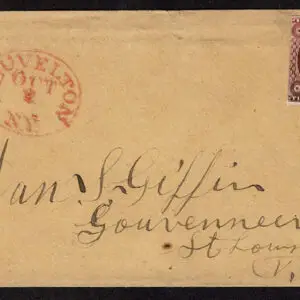 OUVELTON
OUT
N.Y.
an S. Giffin
Gouverneer
St Law